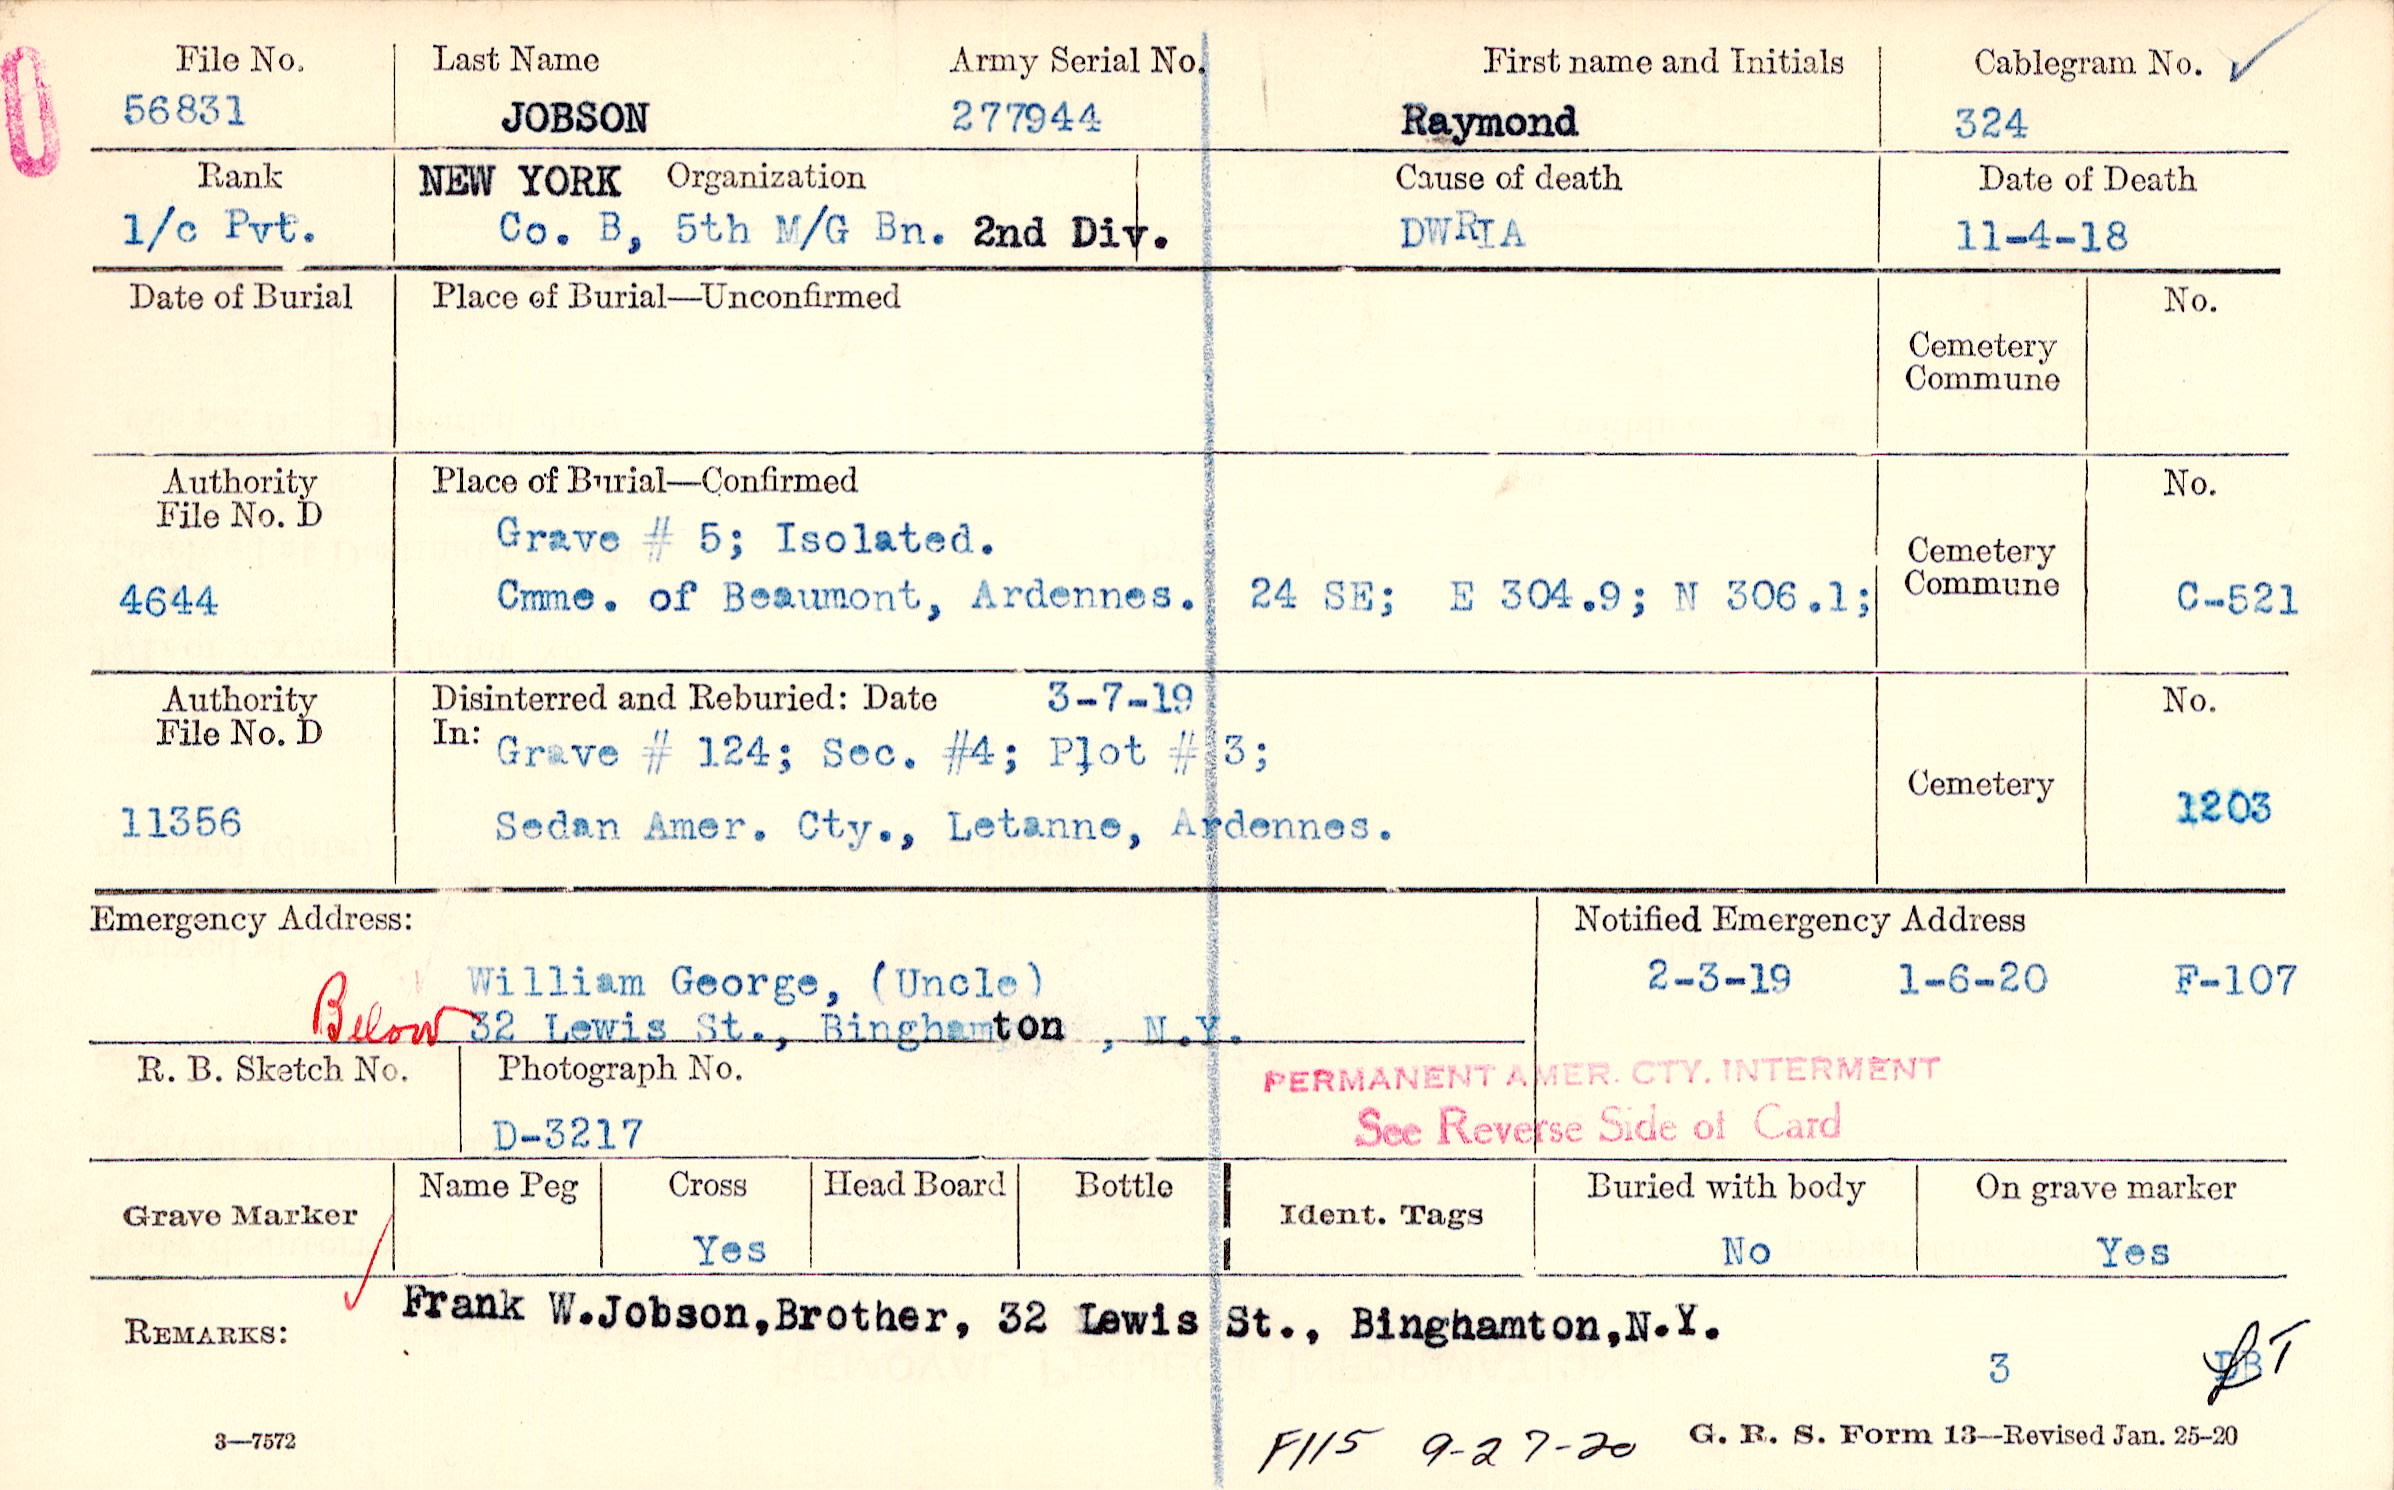 File No. Last Name Army Serial No. First name and Initials Cablegram No.
56831 JOBSON 277944 Raymond 324
Rank NEW YORK Organization Cause of death Date of Death
1/c Pvt. Co. B, 5th M/G Bn. 2nd Div. DWRIA 11-4-18
Date of Burial Place of Burial—Unconfirmed No.
Cemetery
Commune
Authority Place of Burial—Confirmed No.
File No. D
Grave # 5; Isolated.
Cemetery
4644 Cmme. of Beaumont, Ardennes. 24 SE; E 304.9; N 306.1; Commune C-521
Authority Disinterred and Reburied: Date 3-7-19 No.
File No. D In: Grave # 124; Sec. #4; Plot # 3;
Cemetery
11356 Sedan Amer. Cty., Letanne, Ardennes. 1203
Emergency Address: Notified Emergency Address
William George, (Uncle) 2-3-19 1-6-20 F-107
Below 32 Lewis St., Binghamton , N.Y.
R. B. Sketch No. Photograph No. PERMANENT AMER. CTY. INTERMENT
D-3217 See Reverse Side of Card
Grave Marker Name Peg Cross Head Board Bottle Ident. Tags Buried with body On grave marker
Yes No Yes
REMARKS: Frank W.Jobson,Brother, 32 Lewis St., Binghamton,N.Y.
3
3—7572 F115 9-27-20 G. R. S. Form 13—Revised Jan. 25-20